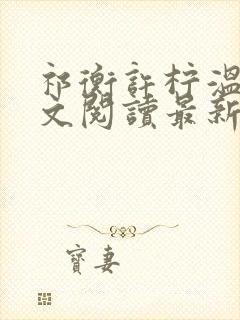 祁衡許柠溫
文閱讀最新
寶妻